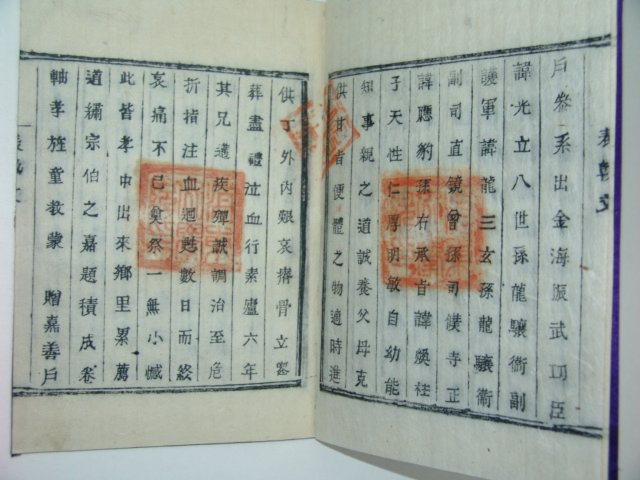 戶參系出金海振武功臣
諱光立八世孫龍驤衛副
護軍諱龍三玄孫龍驤衛
副司直鏡曾孫司僕寺正
諱應豹孫右承旨諱奚柱
子天性仁厚明敏自幼能
知事親之道誠養父母克
供甘旨便體之物適時進
供丁外內艱哀瘠骨立窆
葬盡禮泣血行素廬六年
其兄遘疾殫誠調治至危
折指注血廻甦數日而終
哀痛不已奠祭一無小憾
此皆孝中出來鄕里累薦
道繡宗伯之嘉題積成卷
軸孝旌童敎蒙 贈嘉善戶